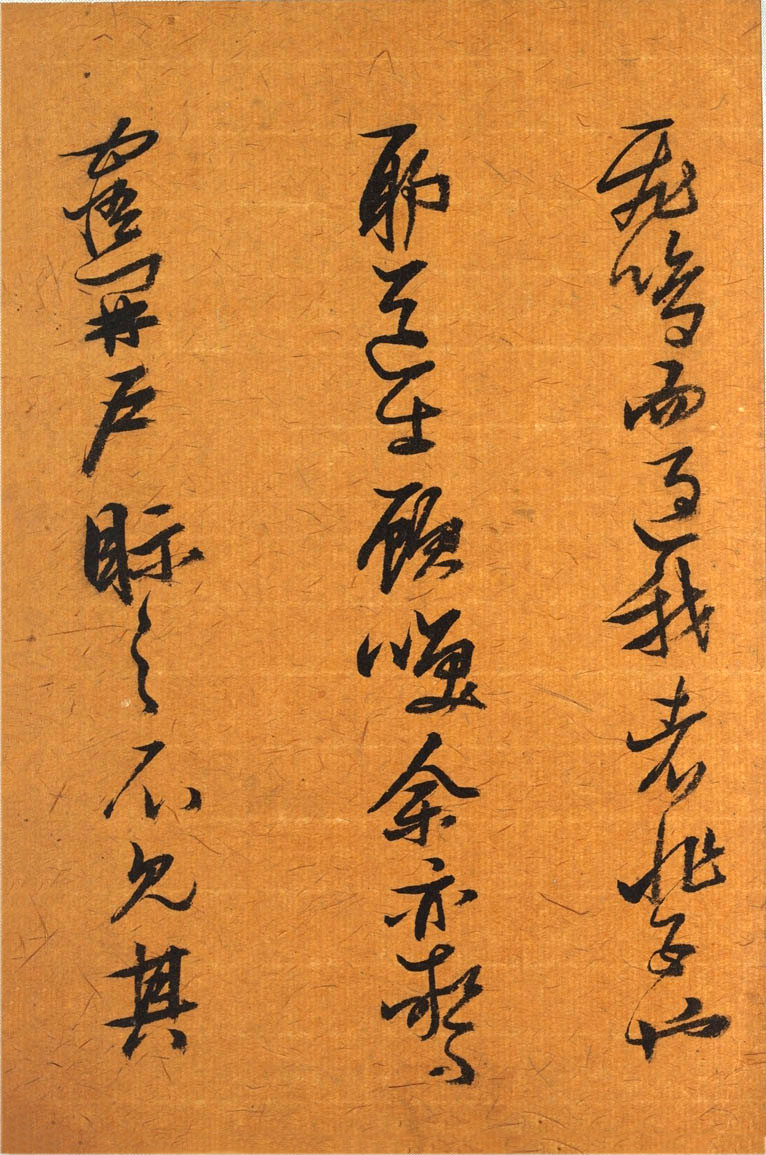 飛鳴而過我者非子也
耶道士顧笑余亦驚
寤開戶視之不見其